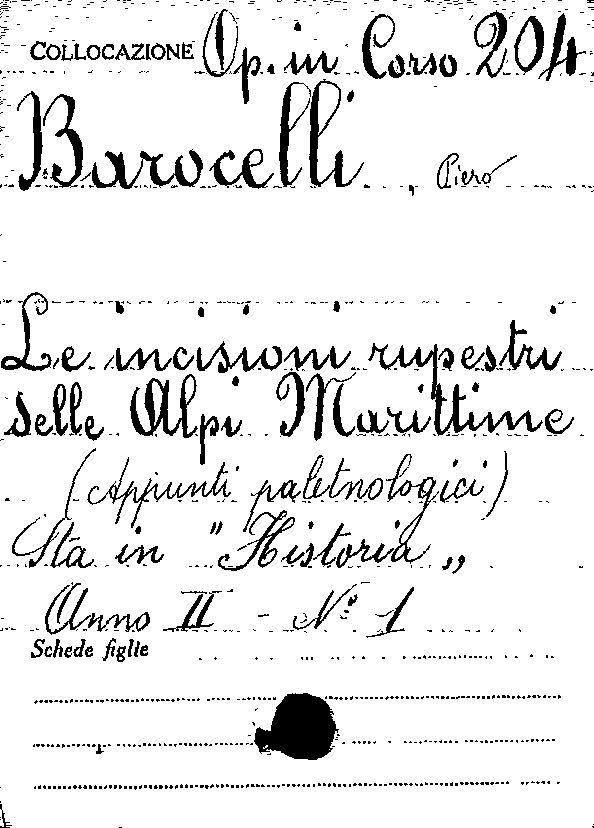 COLLOCAZIONE Op. in Corso 204
Barocelli, Piero
Le incisioni rupestri
delle Alpi Marittime
(Appunti paletnologici)
Sta in "Historia„
Anno II - N.º 1
Schede figlie